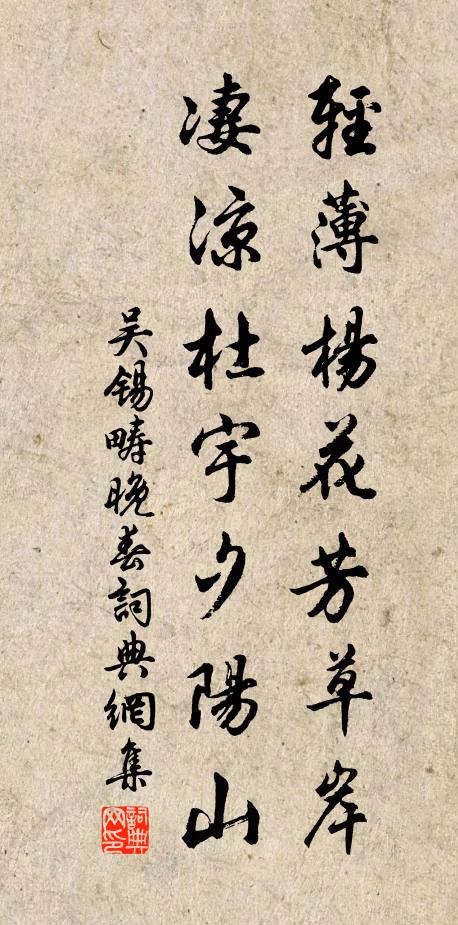 輕薄楊花芳草岸
凄涼杜宇夕陽山
吴錫畴晚春詞典網集
詞典网印